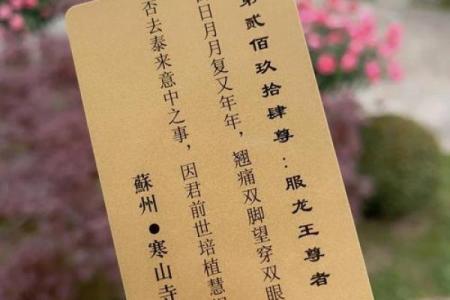 第贰佰玖拾肆尊：服龙王尊者
日日月月复又年年，翘痛双脚望穿双眼
否去泰来意中之事，因君前世培植慧根
蘇州●寒山寺